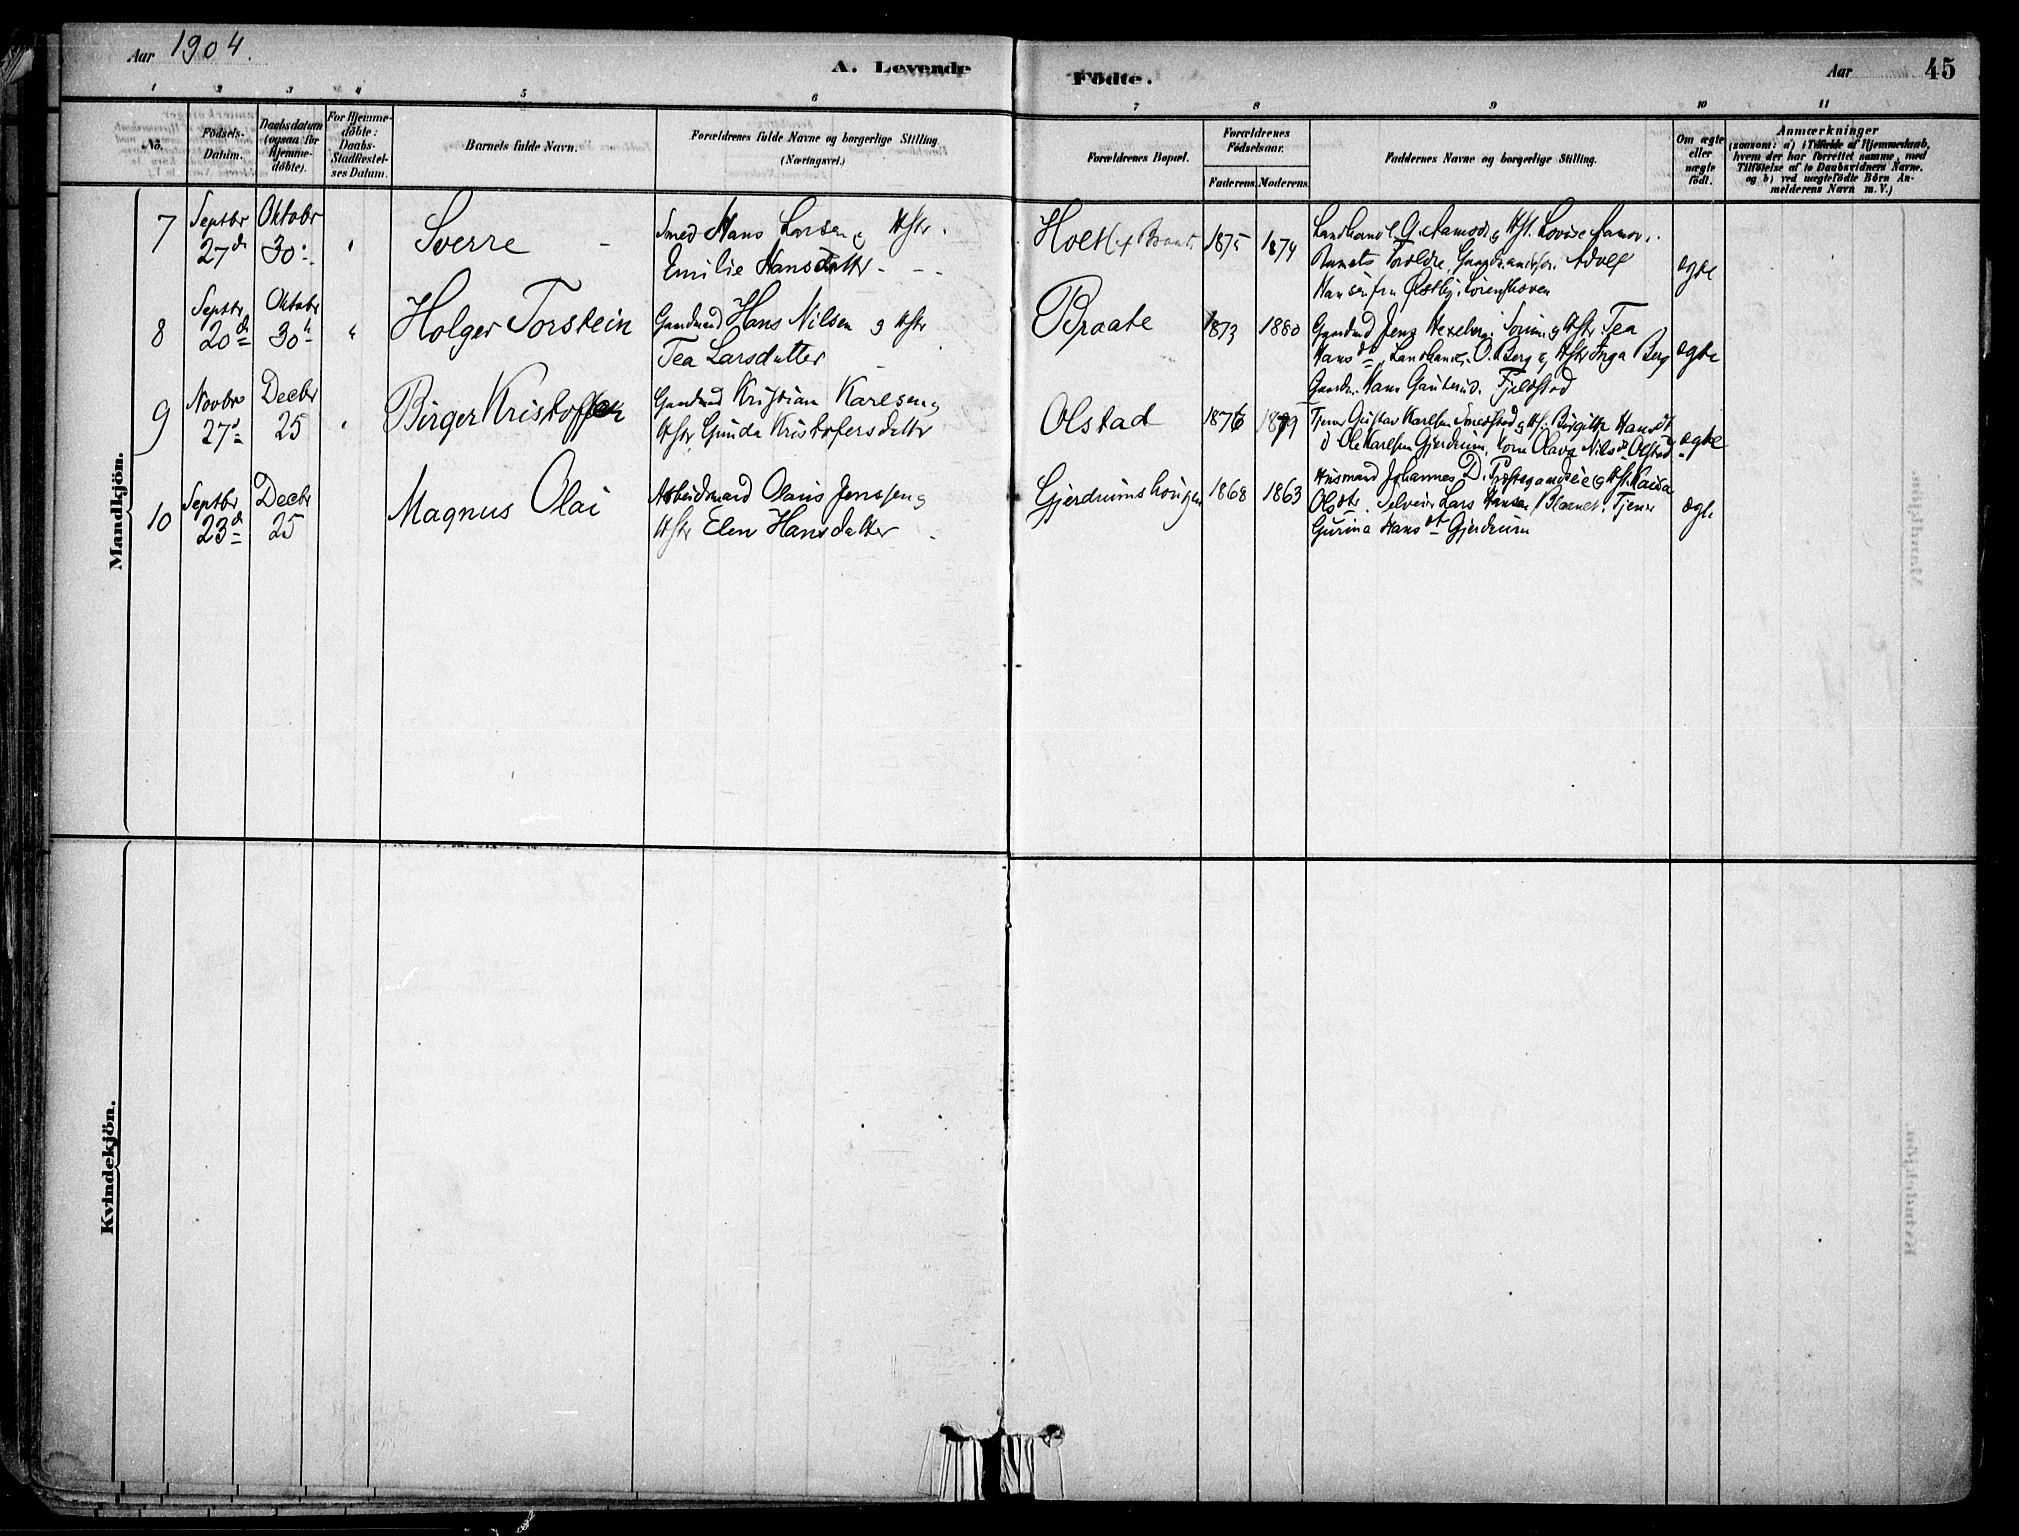 Aar 1904.
A. Levende
Födte.
Aar
45
1 2 3 4 5 6 7 8 9 10 11
No.
Födsels-
Datum.
Daabsdatum
(ogsaa for
Hjemme-
döbte).
For Hjemme-
döbte:
Daabs-
Stadfæstel-
ses Datum.
Barnets fulde Navn.
Forældrenes fulde Navne og borgerlige Stilling.
(Næringsvei.)
Forældrenes Bopæl.
Forældrenes
Födselsaar.
Faderens. Moderens.
Faddernes Navne og borgerlige Stilling.
Om ægte
eller
uægte
födt.
Anmærkninger
(saasom: a) i Tilfælde af Hjemmedaab,
hvem der har forrettet samme, med
Tilföielse af to Daabsvidners Navne,
og b) ved uægtefödte Börn An-
melderens Navn m. V.)
Mandkjön.
7
Septbr
27de
Oktobr
30
Sverre
Smed Hans Larsen og Hstr.
Emilie Hansdatter
Holt
1875
1874
Landhandl. Lovise
Barnets Forældre, Adolf
Hansen fra Østby,
ægte
8
Septbr
20de
Oktobr
30
Holger Torstein
Gaardmd Hans Nilsen og Hstr
Tea Larsdatter
Braate
1873
1880
Gaardmd Jens Hexeberg, Sörum og Hstr Tea
Hansdt, Landhandl. O. Berg og Hstr Inga Berg
Gaardm. Hans Fjeldstad
ægte
9
Novbr
27de
Decbr
25
Birger Kristoffer
Gaardmd Kristian Karlsen og
Hstr Gunda Kristofersdatter
Olstad
1876
1879
Tjener Gustav Karlsen og Hst. Birgitte Hansdt
Ole Karlsen Gjerdrum, Olava Nilsdt Olstad
ægte
10
Septbr
23de
Decbr
25
Magnus Olai
Arbeidsmand Olaus Jenssen og
Hstr Elen Hansdatter
Gjerdrumshougen
1868
1863
Husmand Johannes D. Præstegaardseie og Hst. Maisa
Olsdtr. Selveier Lars Hansen Tjener
Gurina Hansdt Gjerdrum
ægte
Kvindekjön.